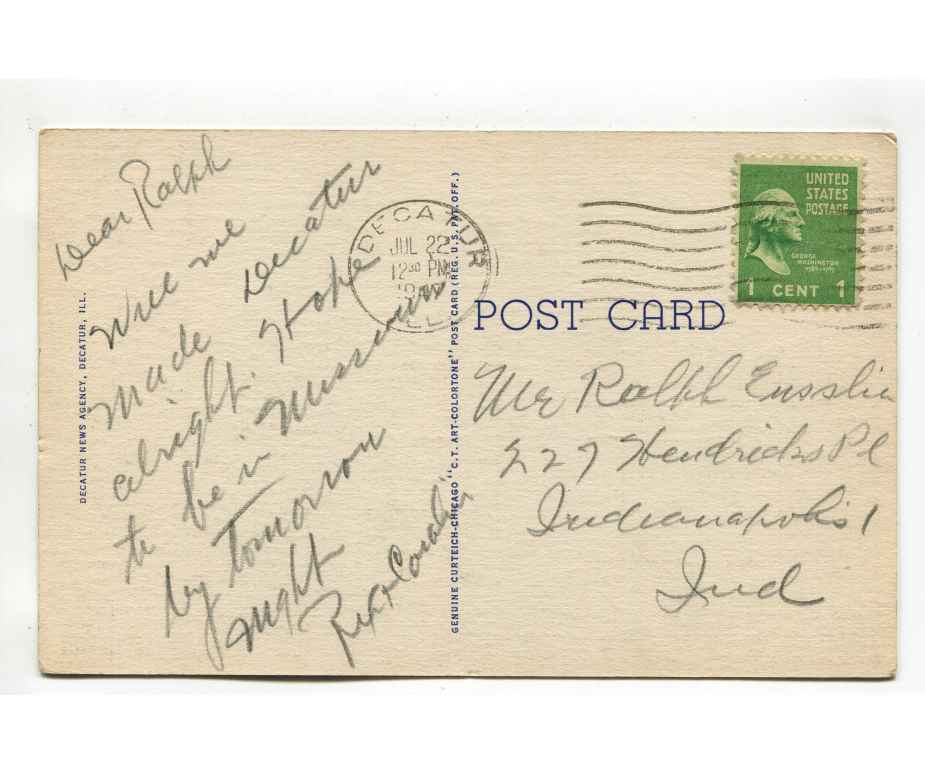 Dear Ralph
Well we
made Decatur
alright. Hope
to be in Missouri
by tomorrow
night
Rex + Coralie
DECATUR NEWS AGENCY, DECATUR, ILL.
GENUINE CURTEICH-CHICAGO "C.T. ART-COLORTONE" POST CARD (REG. U.S. PAT. OFF.)
DECATUR
JUL 22
12 30 PM
ILL.
UNITED
STATES
POSTAGE
GEORGE
WASHINGTON
1 CENT 1
POST CARD
Mr Ralph Ensslin
227 Hendricks Pl
Indianapolis 1
Ind